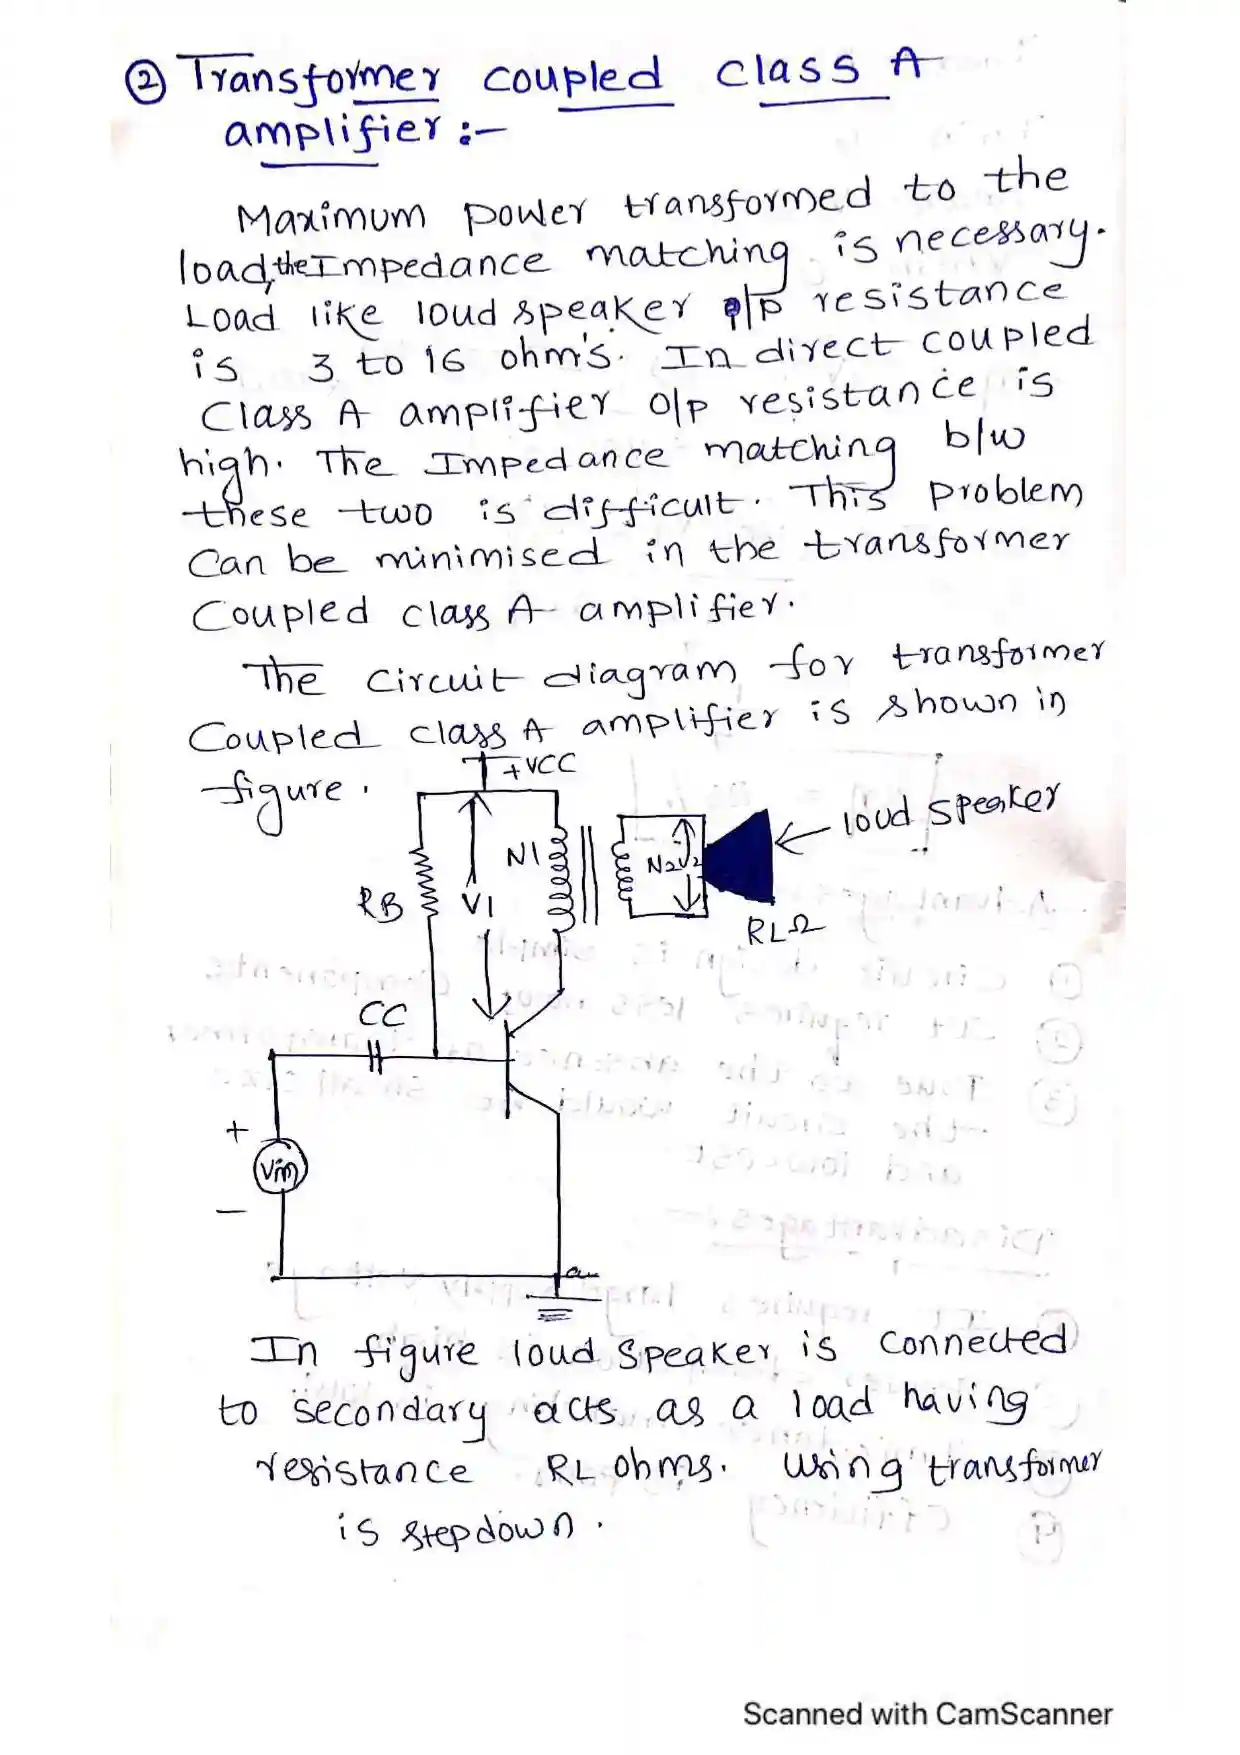 ② Transformer coupled class A
amplifier :-
Maximum power transformed to the
load, the Impedance matching is necessary.
Load like loud speaker p/p resistance
is 3 to 16 ohm's. In direct coupled
Class A amplifier o/p resistance is
high. The Impedance matching b/w
these two is difficult. This problem
Can be minimised in the transformer
Coupled class A amplifier.
The circuit diagram for transformer
Coupled class A amplifier is shown in
figure.
+VCC
loud speaker
N1
N2 V2
RB
V1
RLΩ
CC
+
Vin
−
In figure loud speaker is connected
to secondary acts as a load having
resistance RL ohms. Using transformer
is stepdown.
Scanned with CamScanner